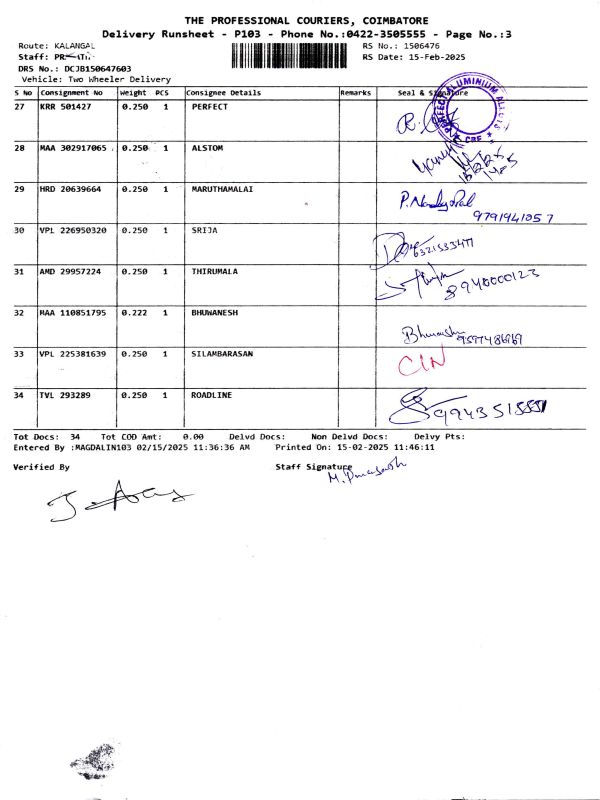 THE PROFESSIONAL COURIERS, COIMBATORE
Delivery Runsheet - P103 - Phone No.:0422-3505555 - Page No.:3
Route: KALANGAL
RS No.: 1506476
Staff:
RS Date: 15-Feb-2025
DRS No.: DCJB150647603
Vehicle: Two Wheeler Delivery
S No Consignment No Weight PCS Consignee Details Remarks Seal & Signature
27 KRR 501427 0.250 1 PERFECT
PERFECT ALUMINIUM ALLOYS
CBE
28 MAA 302917065 0.250 1 ALSTOM
29 HRD 20639664 0.250 1 MARUTHAMALAI
9791941057
30 VPL 226950320 0.250 1 SRIJA
31 AMD 29957224 0.250 1 THIRUMALA
8940000123
32 MAA 110851795 0.222 1 BHUWANESH
33 VPL 225381639 0.250 1 SILAMBARASAN
CIN
34 TVL 293289 0.250 1 ROADLINE
Tot Docs: 34 Tot COD Amt: 0.00 Delvd Docs: Non Delvd Docs: Delvy Pts:
Entered By :MAGDALIN103 02/15/2025 11:36:36 AM Printed On: 15-02-2025 11:46:11
Verified By Staff Signature